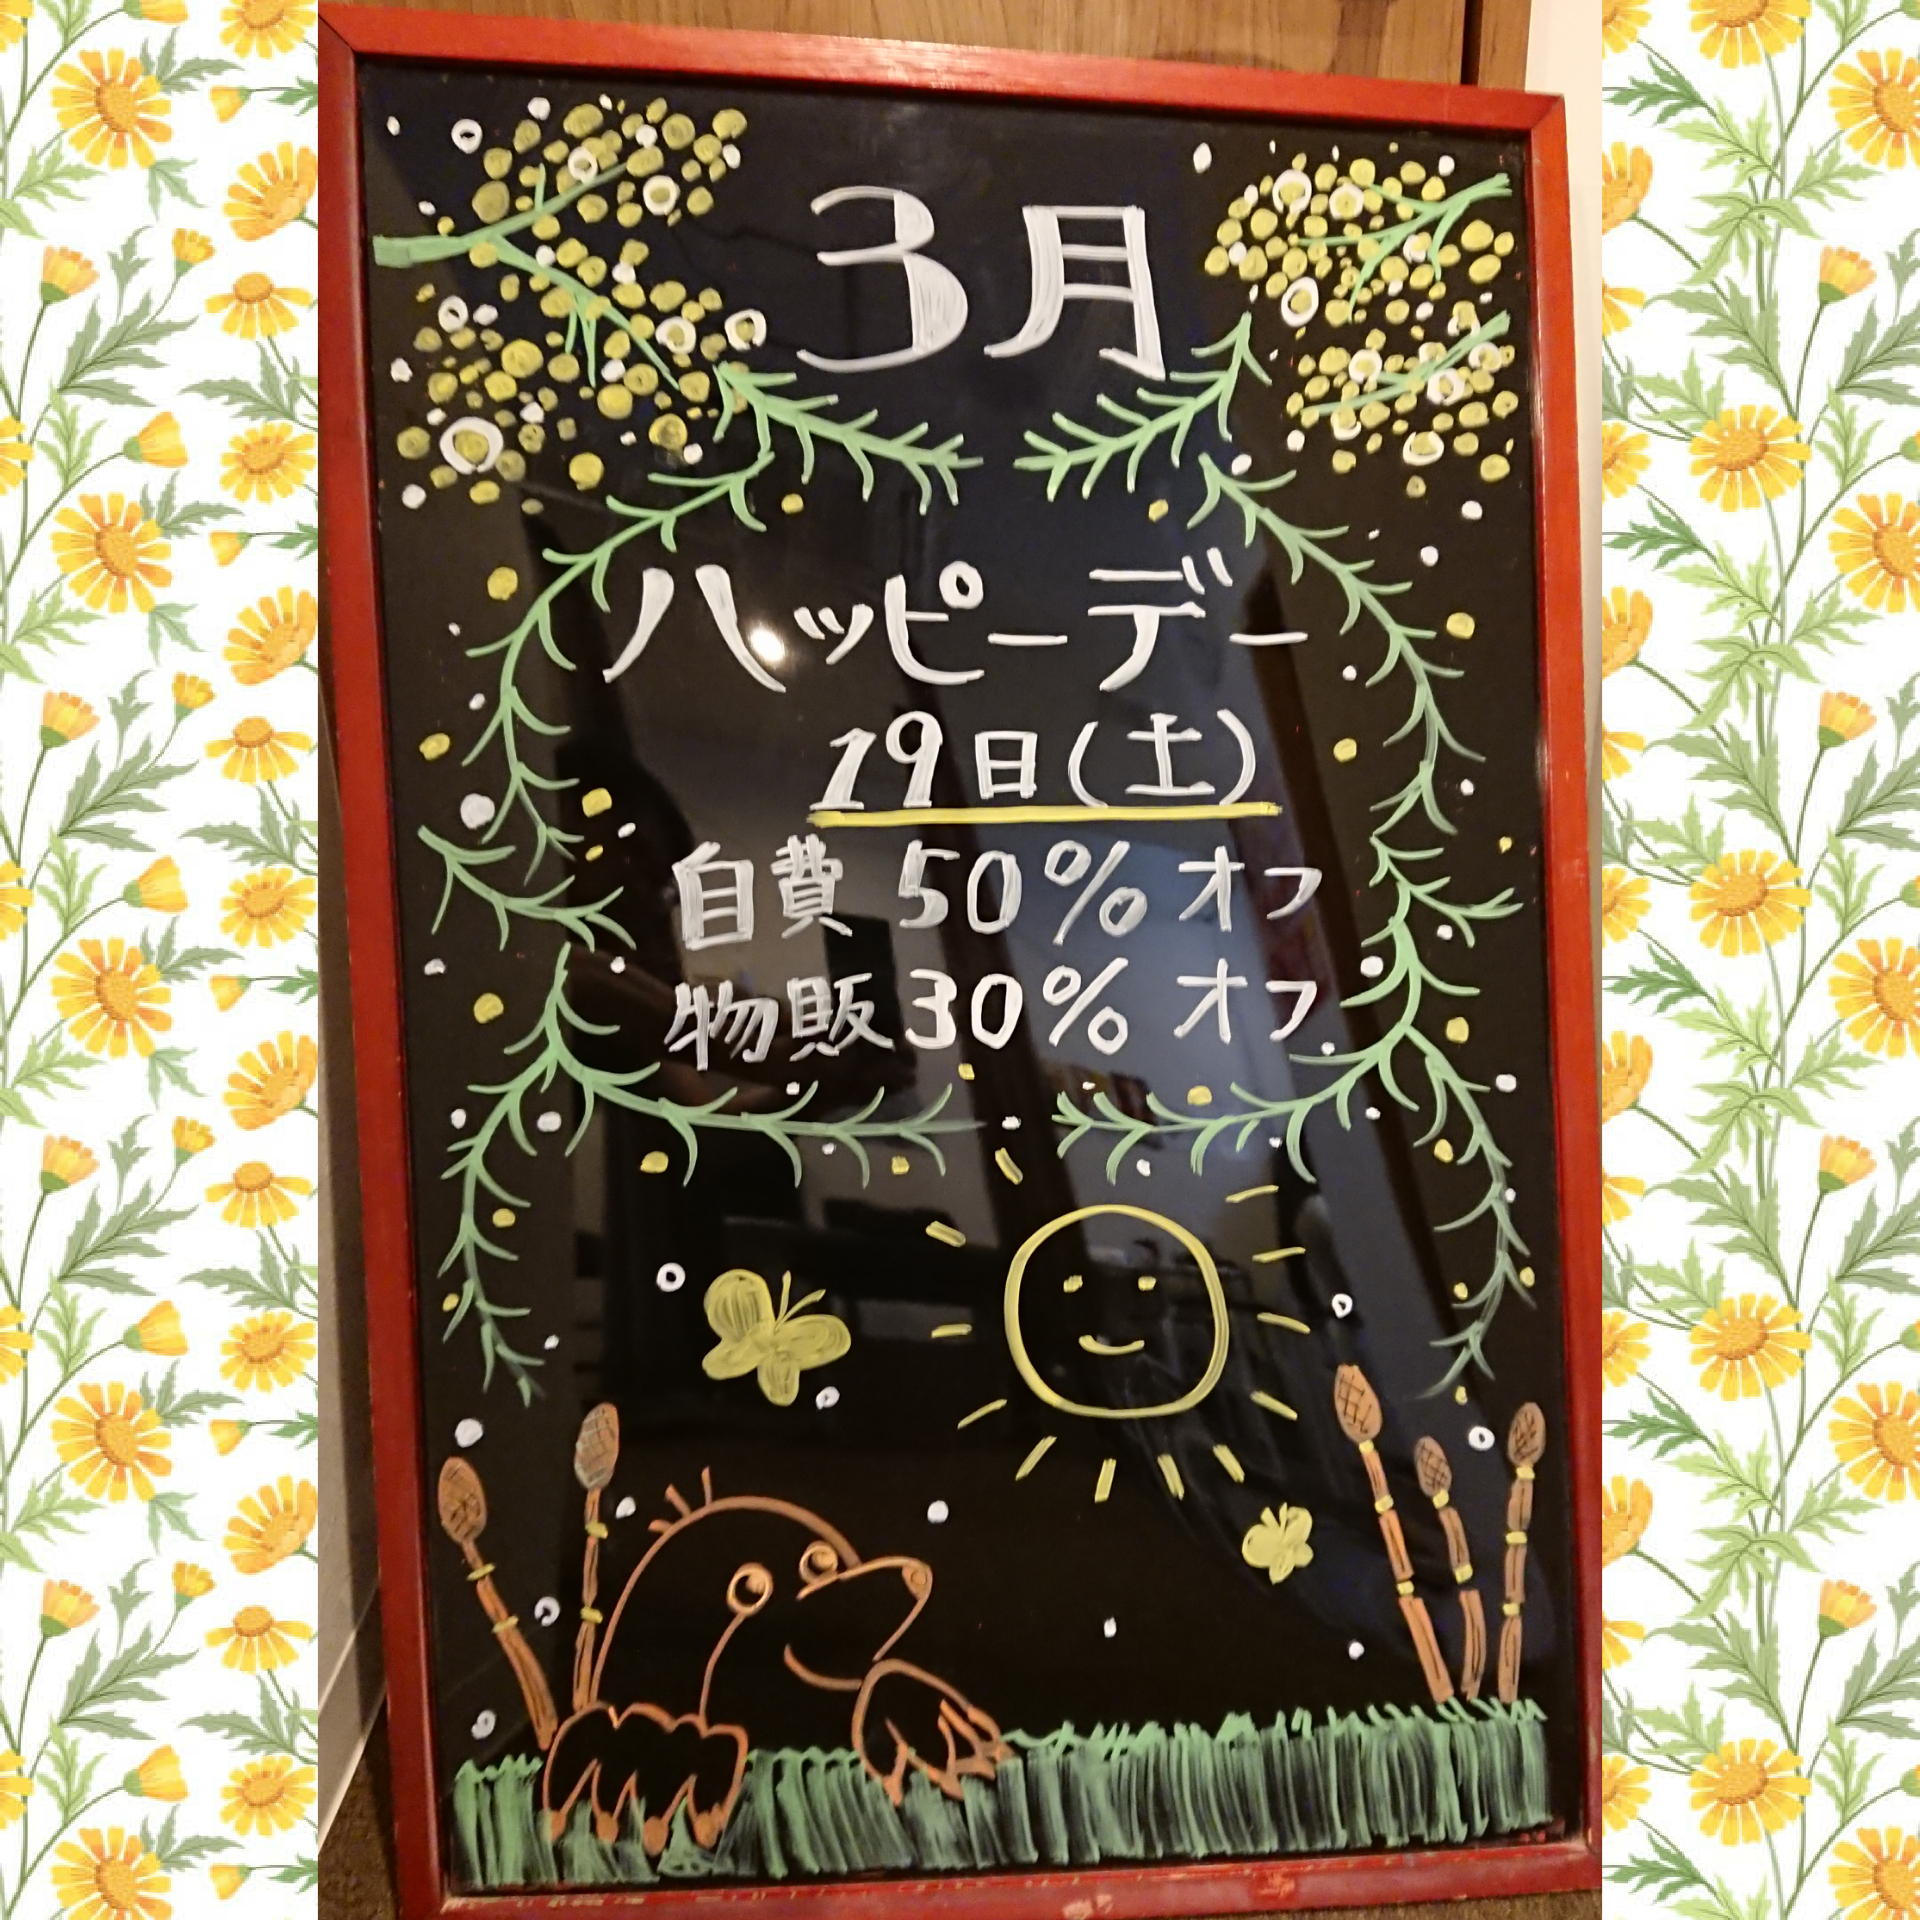 3月
ハッピーデー
19日(土)
自費50%オフ
物販30%オフ